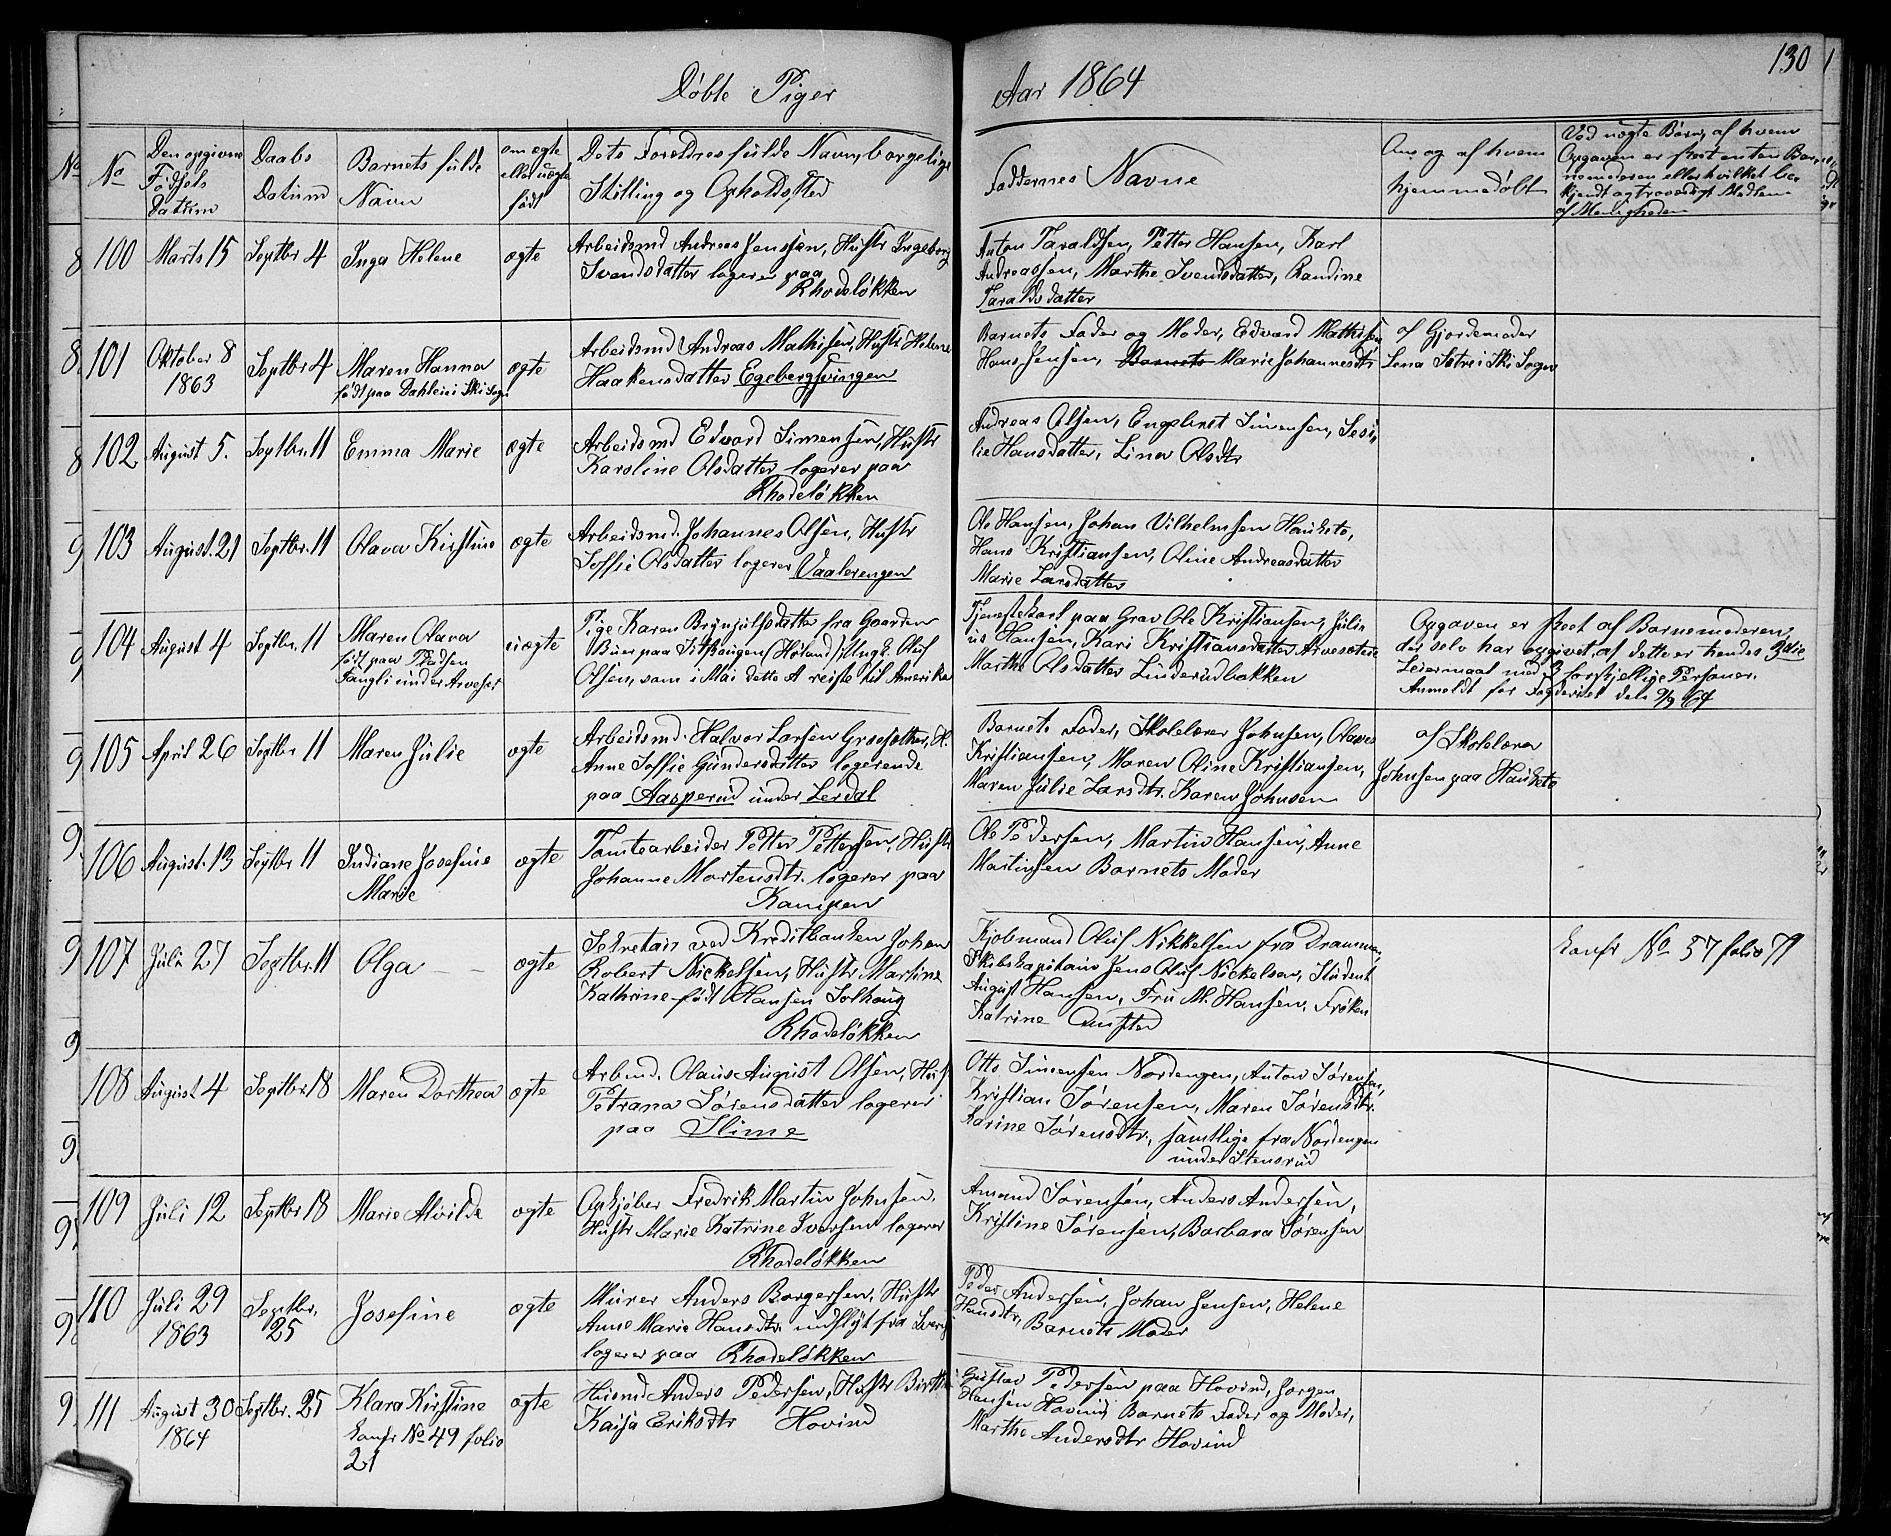 130
Døbte Piger
Aar 1864
No
No
Den opgivne Fødsels Datum
Daabs Datum
Barnets fulde Navn
om ægte eller uægte født
Dets Forældres fulde Navn, borgelige Stilling og Opholdssted
Faddernes Navne
Om og af hvem hjemmedøbt
Ved uægte Børn, af hvem Opgaven er skeet enten Barnemoderen eller hvilket bekjendt og troværdigt Medlem af Menigheden
100 Marts 15 Septbr 4 Inga Helene ægte
Arbeidsmd Andreas Jenssen, Hustr Ingeborg
Svendsdatter logerer paa
Rhodeløkken
Anton Taraldsen, Petter Hansen, Karl
Andreassen, Marthe Svendsdatter, Randine
Taraldsdatter
101 Oktober 8 1863 Septbr 4 Maren Hanna
født paa Dahlen i Ski Sogn
ægte
Arbeidsmd Andreas Mathisen, Hustr Helene
Haakensdatter Egebergsvingen
Barnets Fader og Moder, Edvard Mathisen
Hans Jensen, Barnets Marie Johannesdtr
af Gjordemoder
Lena Sætre i Ski Sogn
102 August 5. Septbr. 11 Emma Marie ægte
Arbeidsmd Edvard Simensen, Hustr
Karoline Olsdatter logerer paa
Rhodeløkken
Andreas Olsen, Engebret Simensen, Sesi,
lie Hansdatter, Lina Olsdtr
103 August. 21 Septbr. 11 Olava Kirstine ægte
Arbeidsmd. Johannes Olsen, Hustr
Soffie Olsdatter logerer Vaalerengen
Ole Hansen, Johan Vilhelmsen Hauketo,
Hans Kristiansen, Oline Andreasdatter
Marie Larsdatter
104 August 4 Septbr. 11 Maren Olava
født paa Pladsen
under Arveset
uægte
Pige Karen Brynjulfsdatter fra Gaarden
Olsen, som i Mai dette A reiste til Amerika
Tjenestekarl paa Grav Ole Kristiansen, Juli
us Hansen, Kari Kristiansdatter Arvesætre
Marthe Olsdatter Linderudbakken
Opgaven er skeet af Barnemoderen,
der selv har opgivet, af dette er hendes 3die
Leiermaal med 3 forskjellige Personer.
Anmeldt for Fogderiet den 9/9 64
105 April 26 Septbr 11 Maren Julie ægte
Arbeidsmd. Halvor Larsen Græsæther, H.
Anne Soffie Gundersdatter logerende
paa Aasperud under Lerdal
Barnets Fader, Skolelærer Johnsen, Olaves
Kristiansen, Maren Oline Kristiansen,
Maren Julie Larsdtr. Karen Johnsen
af Skolelærer
Johnsen paa Hauketo
106 August. 13 Septbr 11 Indiane Josefine
Marie
ægte
Tomtearbeider Petter Pettersen, Hustr
Johanne Mortensdtr. logerer paa
Kampen
Ole Pedersen, Martin Hansen, Anne
Martinsen Barnets Moder
107 Juli 27 Septbr. 11 Olga ægte
Sekretair ved Kreditbanken Johan
Robert Nickelsen, Hustr Martine
Kathrine født Hansen Solhaug
Rhodeløkken
Kjøbmand Oluf Nikkelsen fra Drammen,
Skibskapitain Jens Oluf Nickelsen, Student
August Hansen, Fru M. Hansen, Frøken
Katrine
Konfr No 57 folio 71
108 August 4 Septbr 18 Maren Dorthea ægte
Arbmd. Olaus August Olsen, Hus
Petrana Sørensdatter logerer
paa Slime
Otto Simensen Nordengen, Anton Sørensen,
Kristian Sørensen, Maren Sørensdtr.
Karine Sørensdtr., samtlige fra Nordengen
under Stensrud
109 Juli 12 Septbr 18 Marie Alvilde ægte
Opkjøber Fredrik Martin Johnsen.
Hustr Marie Katrine Iversen logerer
Rhodeløkken
Amund Sørensen, Anders Andersen,
Kristine Sørensen, Barbara Sørensen
110 Juli 29 1863 Septbr. 25 Josefine ægte
Murer Anders Borgersen, Hustr
Anne Marie Hansdtr. indflyt fra Sverig
logerer paa Rhodeløkken
Peder Andersen, Johan Jensen, Helene
Hansdtr, Barnets Moder
111 August 30 1864 Septbr. 25 Klara Kirstine
Konfr No 49 folio
21
ægte
Husmd Anders Pedersen, Hustr
Kaisa Eriksdtr Hovind
Gustav Pedersen paa Hovind, Jørgen
Hansen Hovind, Barnets Fader og Moder,
Marthe Andersdtr Hovind